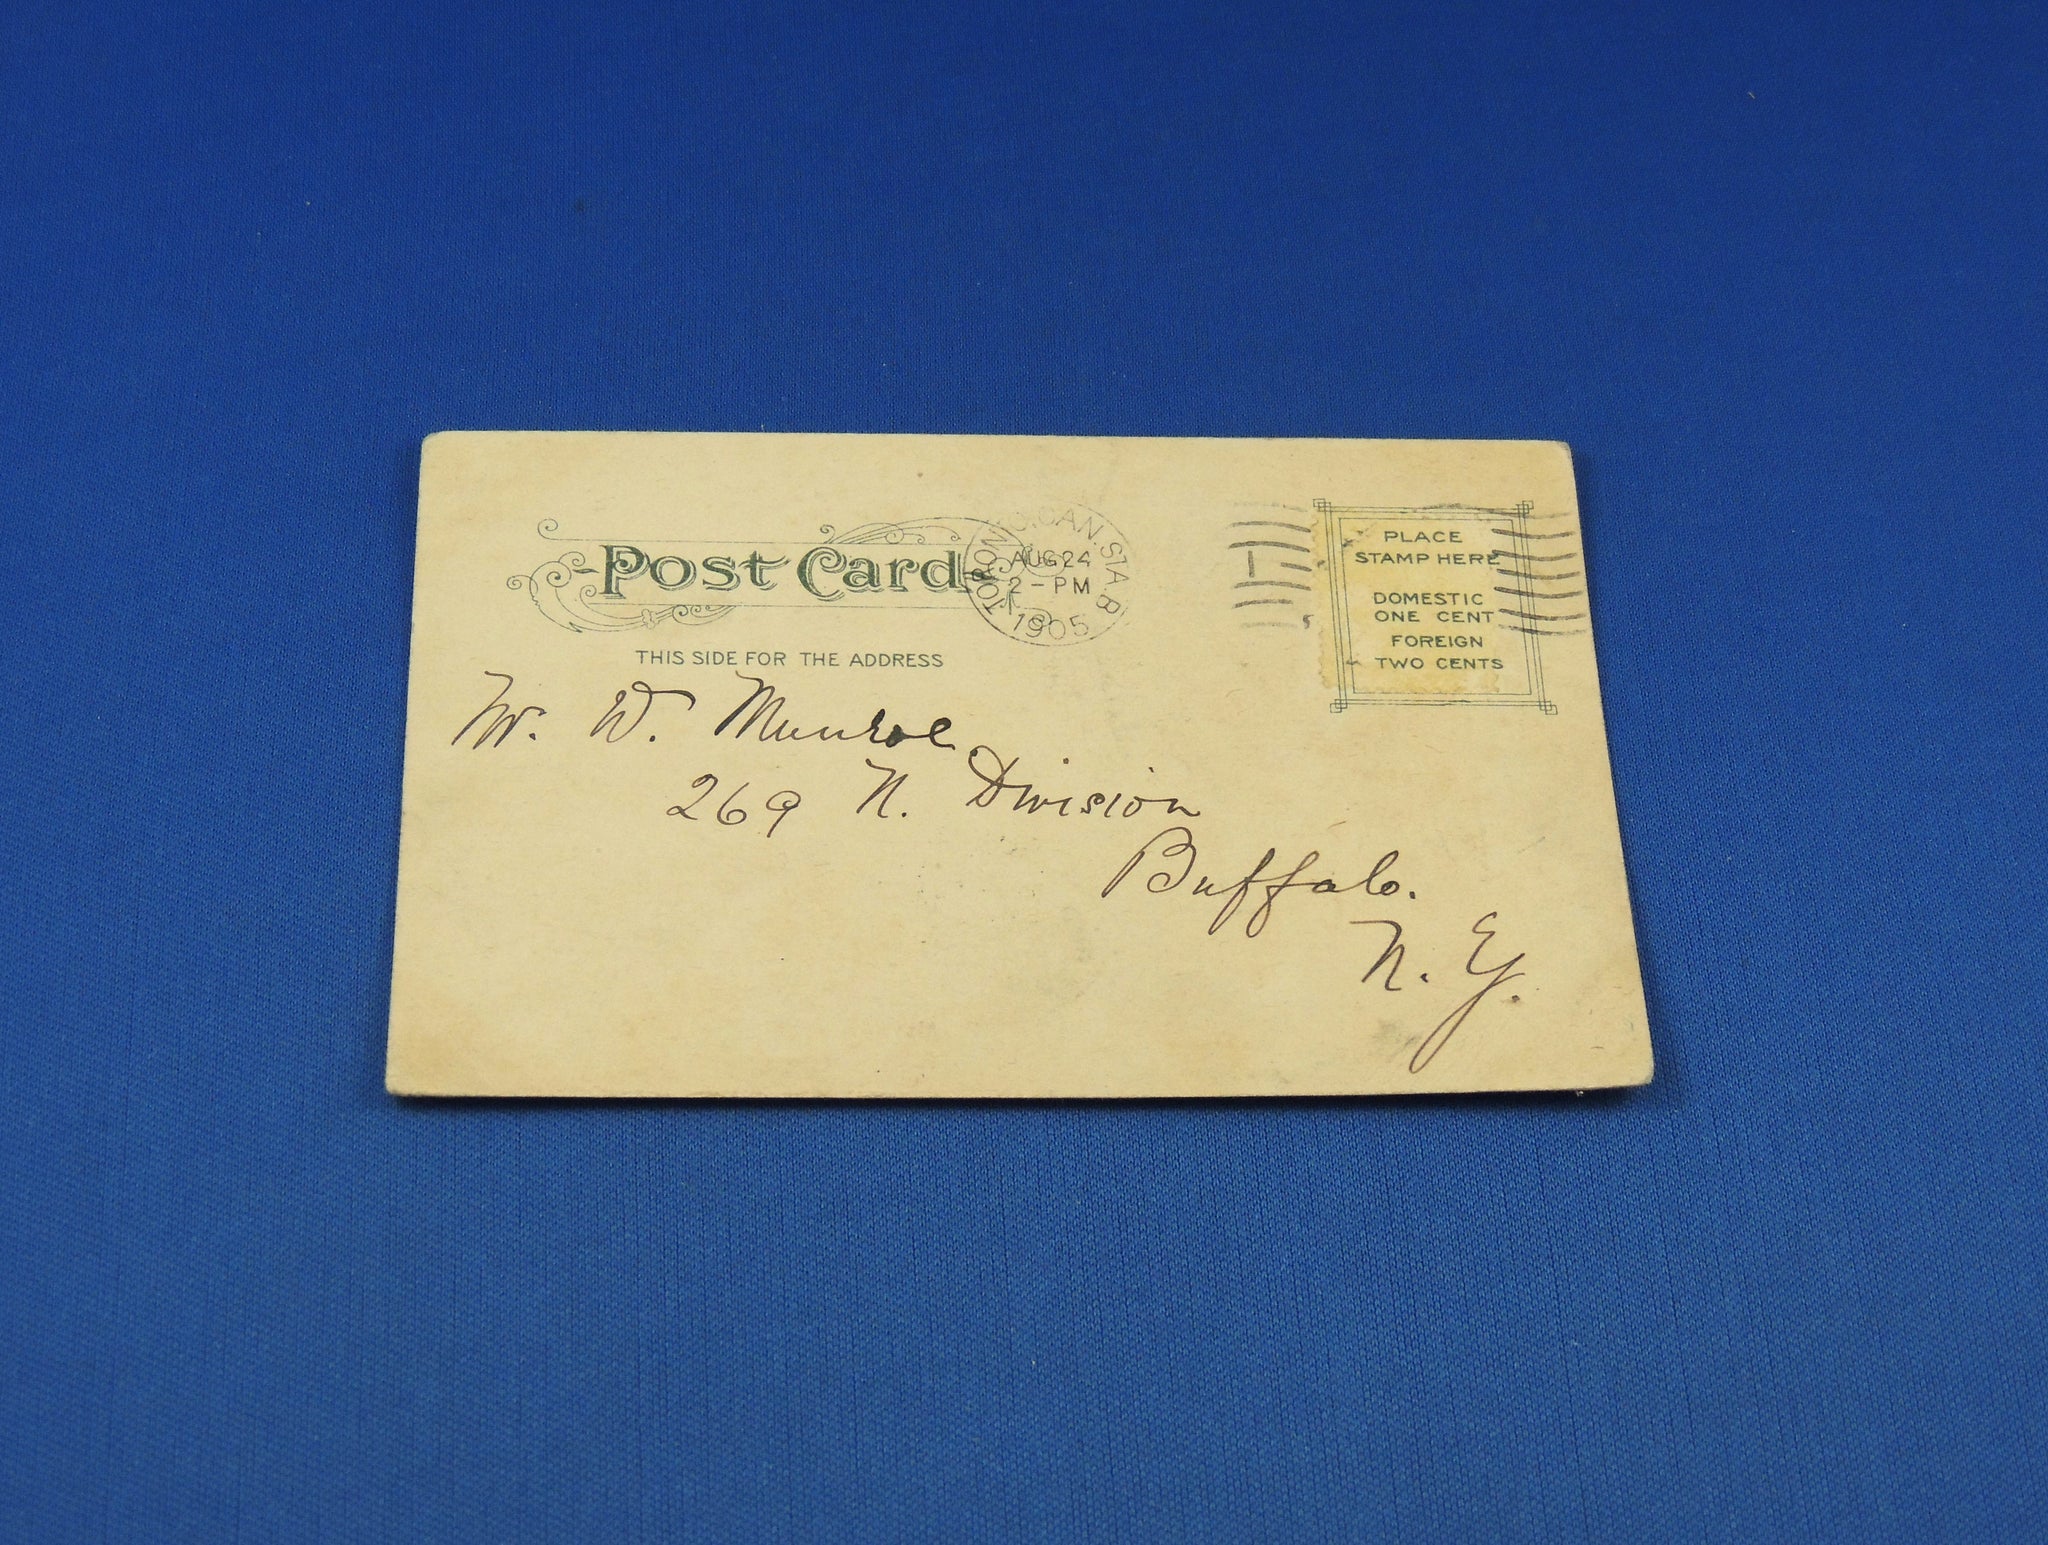 Post Card
THIS SIDE FOR THE ADDRESS
TORONTO. CAN. STA B
AUG 24
2 - PM
1905
1
PLACE
STAMP HERE
DOMESTIC
ONE CENT
FOREIGN
TWO CENTS
Mr. W. Munroe
269 N. Division
Buffalo.
N. Y.